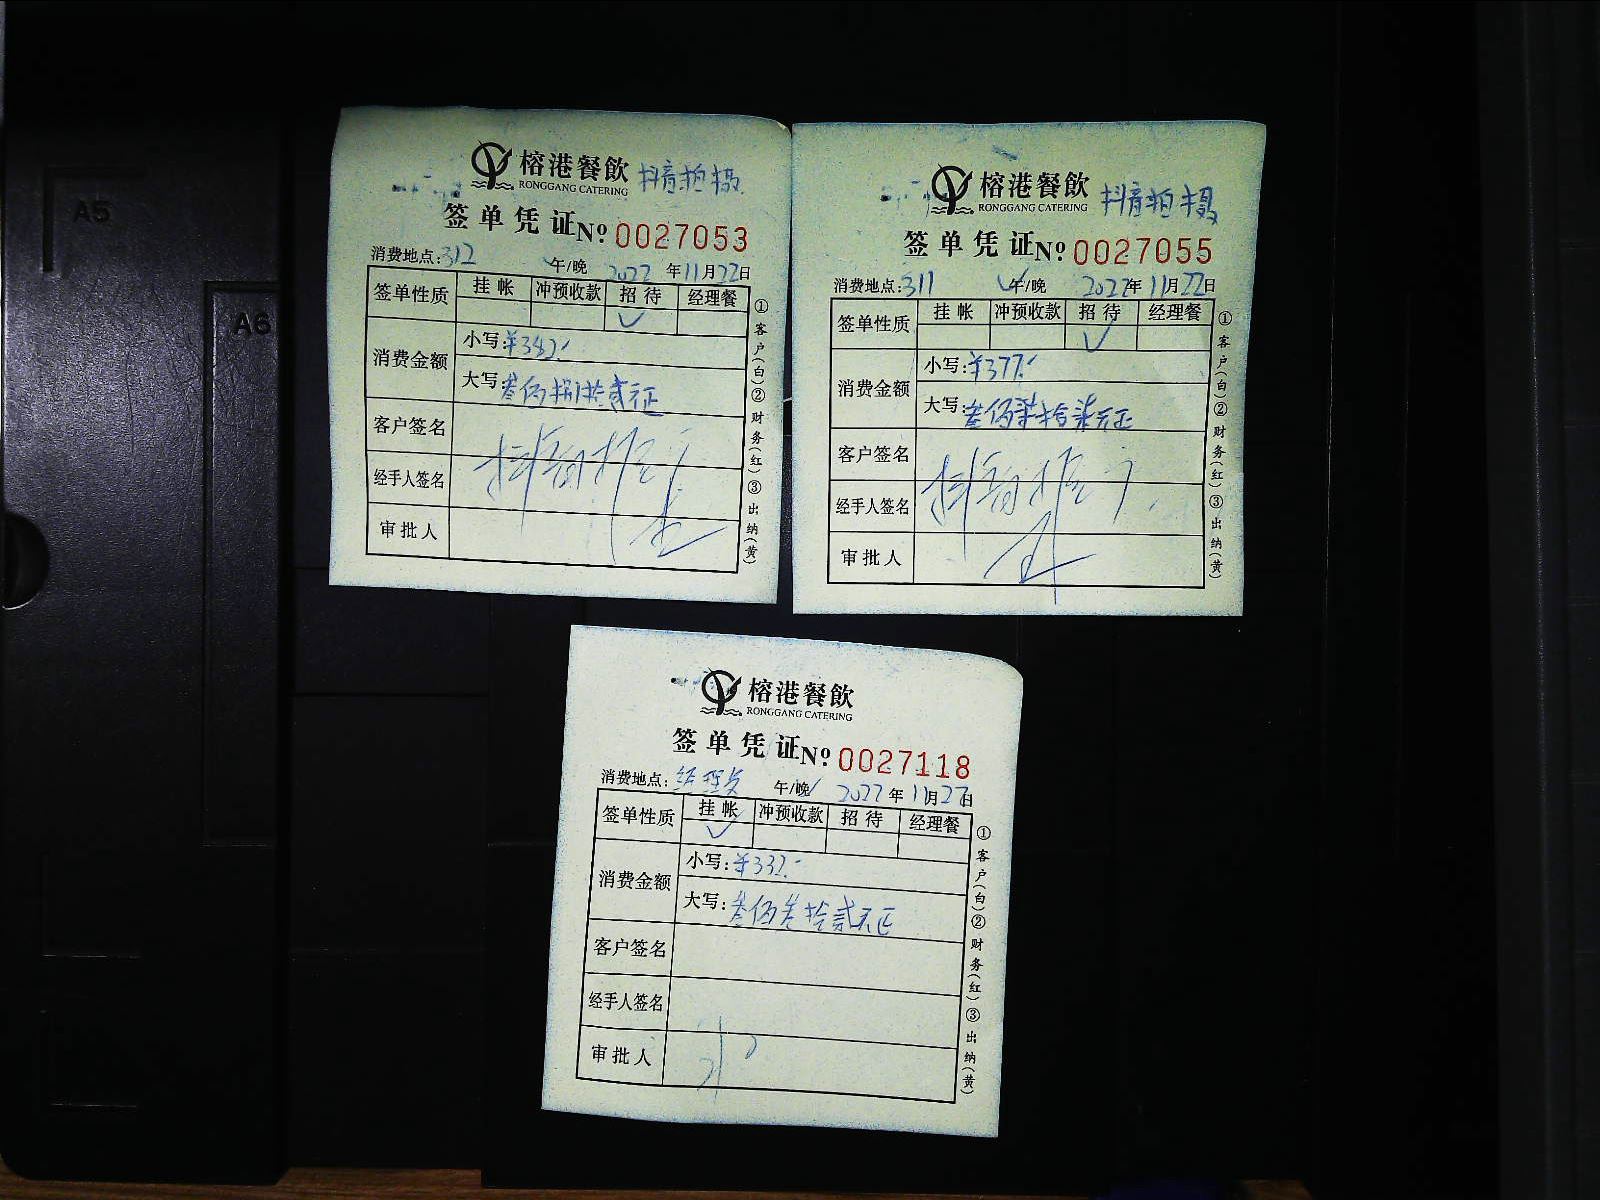 A5
A6
榕港餐飲 抖音拍摄
RONGGANG CATERING
签单凭证 №0027053
消费地点:312 午/晚 2022年11月22日
签单性质 挂帐 冲预收款 招待 经理餐
✓
消费金额 小写:¥382.-
大写:叁佰捌拾贰元正
客户签名
经手人签名
审批人
①客户(白)②财务(红)③出纳(黄)
榕港餐飲 抖音拍摄
RONGGANG CATERING
签单凭证 №0027055
消费地点:311 午/晚 2022年11月22日
签单性质 挂帐 冲预收款 招待 经理餐
✓
消费金额 小写:¥377.-
大写:叁佰柒拾柒元正
客户签名
经手人签名
审批人
①客户(白)②财务(红)③出纳(黄)
榕港餐飲
RONGGANG CATERING
签单凭证 №0027118
消费地点:经理 午/晚✓ 2022年11月27日
签单性质 挂帐 冲预收款 招待 经理餐
✓
消费金额 小写:¥332.-
大写:叁佰叁拾贰元正
客户签名
经手人签名
审批人
①客户(白)②财务(红)③出纳(黄)